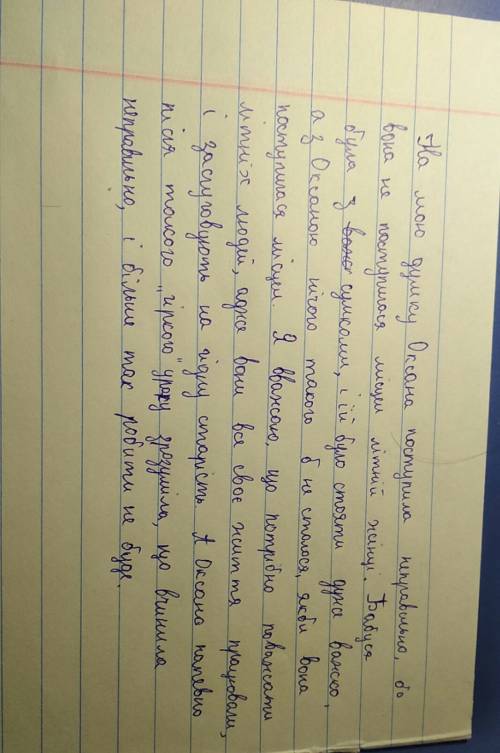 На мою думку Оксана поступила неправильно, бо
вона не поступилася місцем літній жінці. Бабуся
була з важк сумками, і їй було стояти дуже важко,
а з Оксаною нічого такого б не сталося, якби вона
поступилася місцем. Я вважаю, що потрібно поважати
літніх людей, адже вони все своє життя працювали,
і заслуговують на гідну старість. А Оксана напевно
після такого "гіркого" уроку зрозуміла, що вчинила
неправильно, і більше так робити не буде.